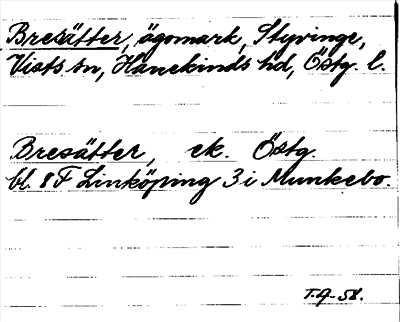 Bresätter, ägomark, Styvinge,
Vists sn, Hanekinds hd, Östg. l.
Bresätter, ek. Östg.
bl. 8F Linköping 3i Munkebo.
T.G-58.